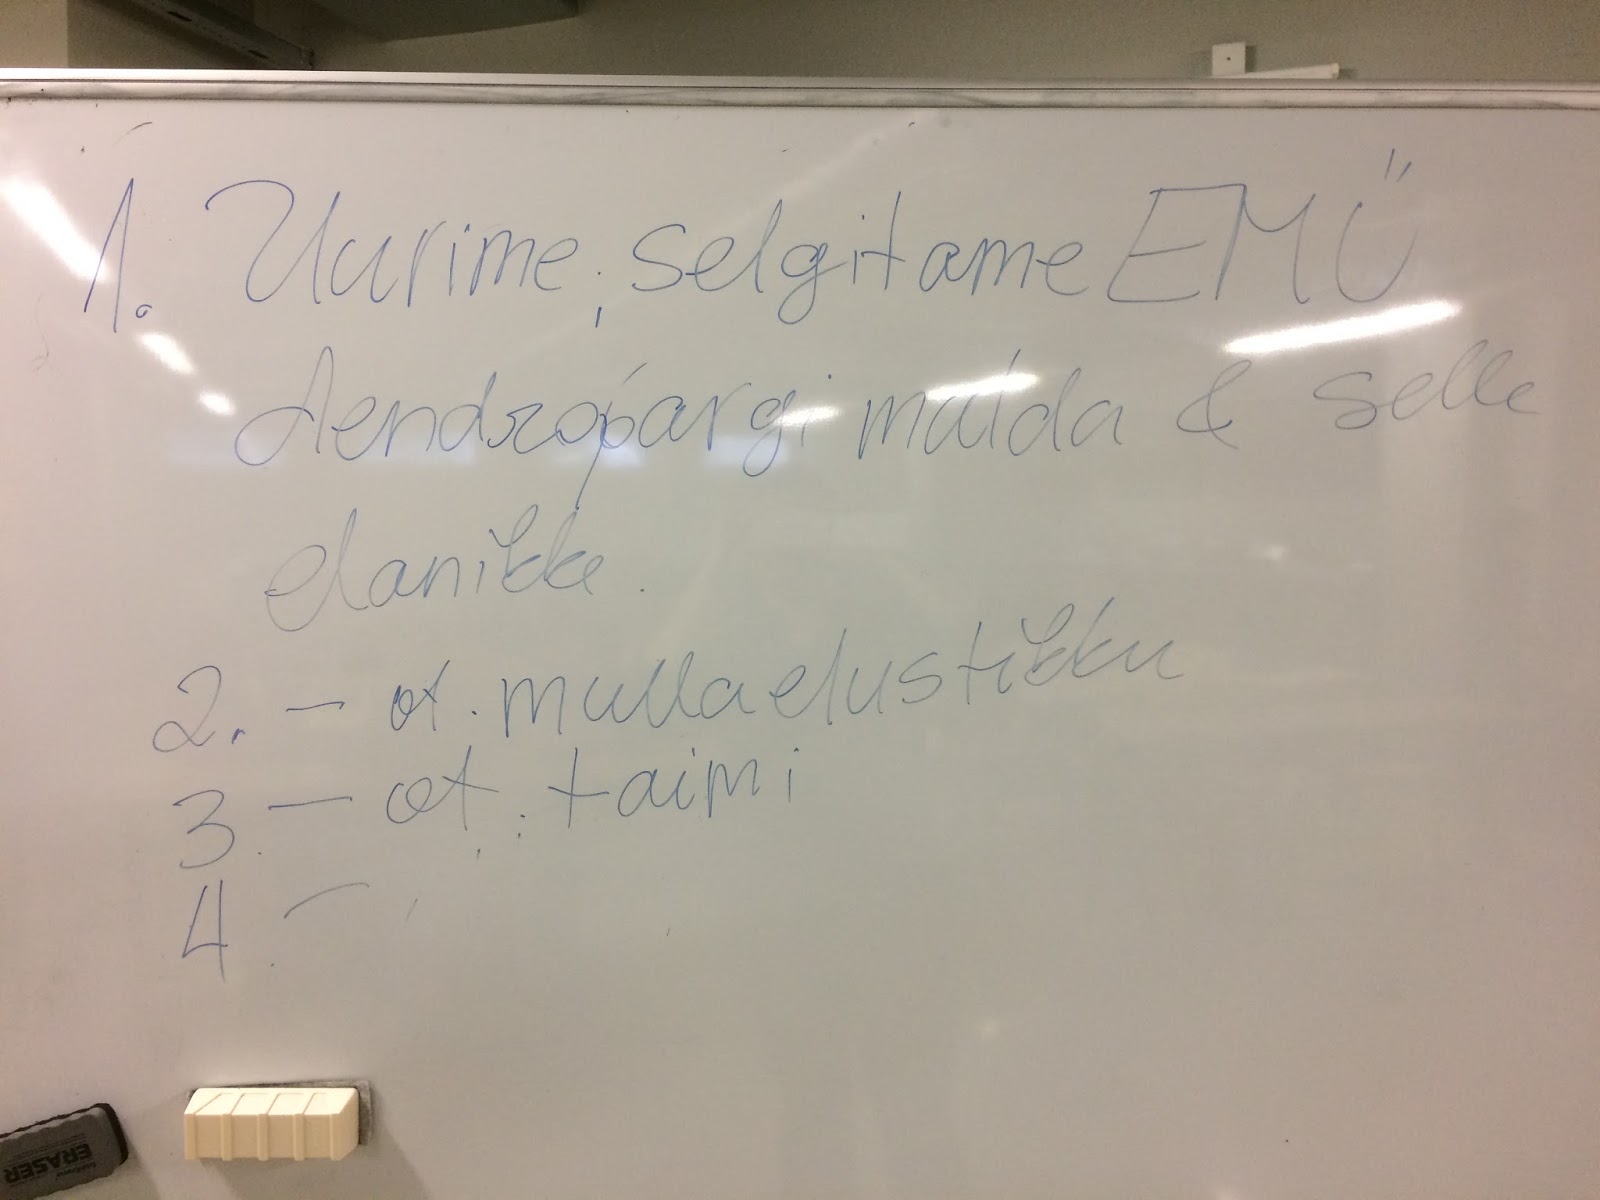 1. Uurime, selgitame EMÜ
dendropargi mulda & selle
elanikke.
2. – ot. mullaelustikku
3. – ot. taimi
4. –
ERASER